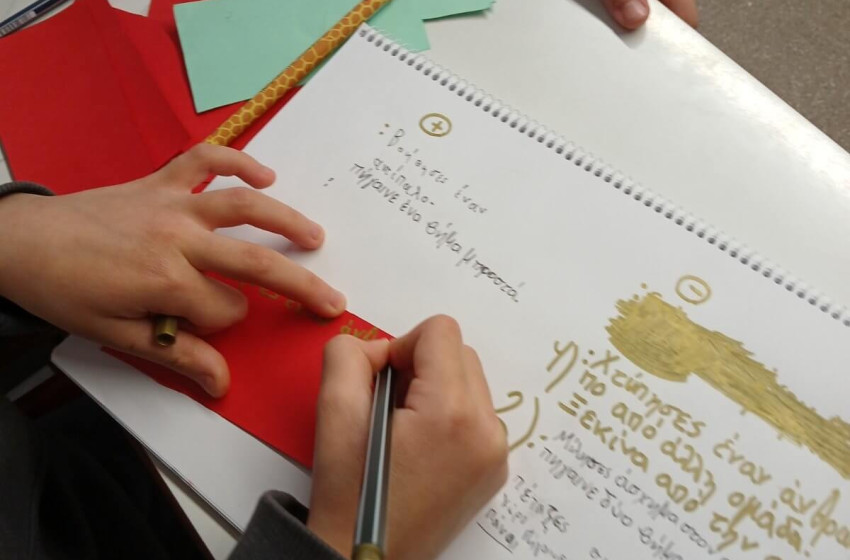 +
: Βοήθησε έναν
αντίπαλο-
πήγαινε ένα βήμα μπροστά.
:
-
1) : Χτύπησες έναν άνθρω
πο από άλλη ομάδα.
Ξεκίνα από την
2) : Μίλησες άσχημα στον
πήγαινε δύο βήμα
Πέταξες